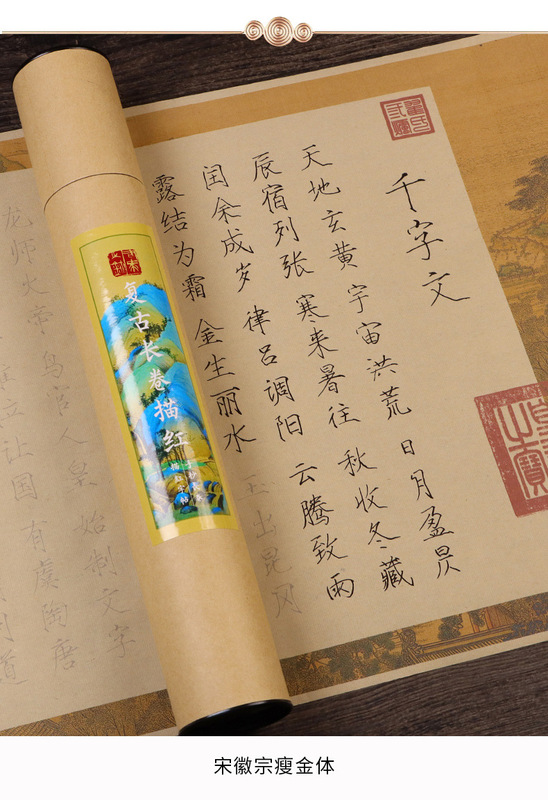 千字文
天地玄黄 宇宙洪荒 日月盈昃
辰宿列张 寒来暑往 秋收冬藏
闰余成岁 律吕调阳 云腾致雨
露结为霜 金生丽水 玉出昆冈
复古长卷描红
描红字帖
龙师火帝 鸟官人皇 始制文字
位让国 有虞陶唐
问道
宋徽宗瘦金体